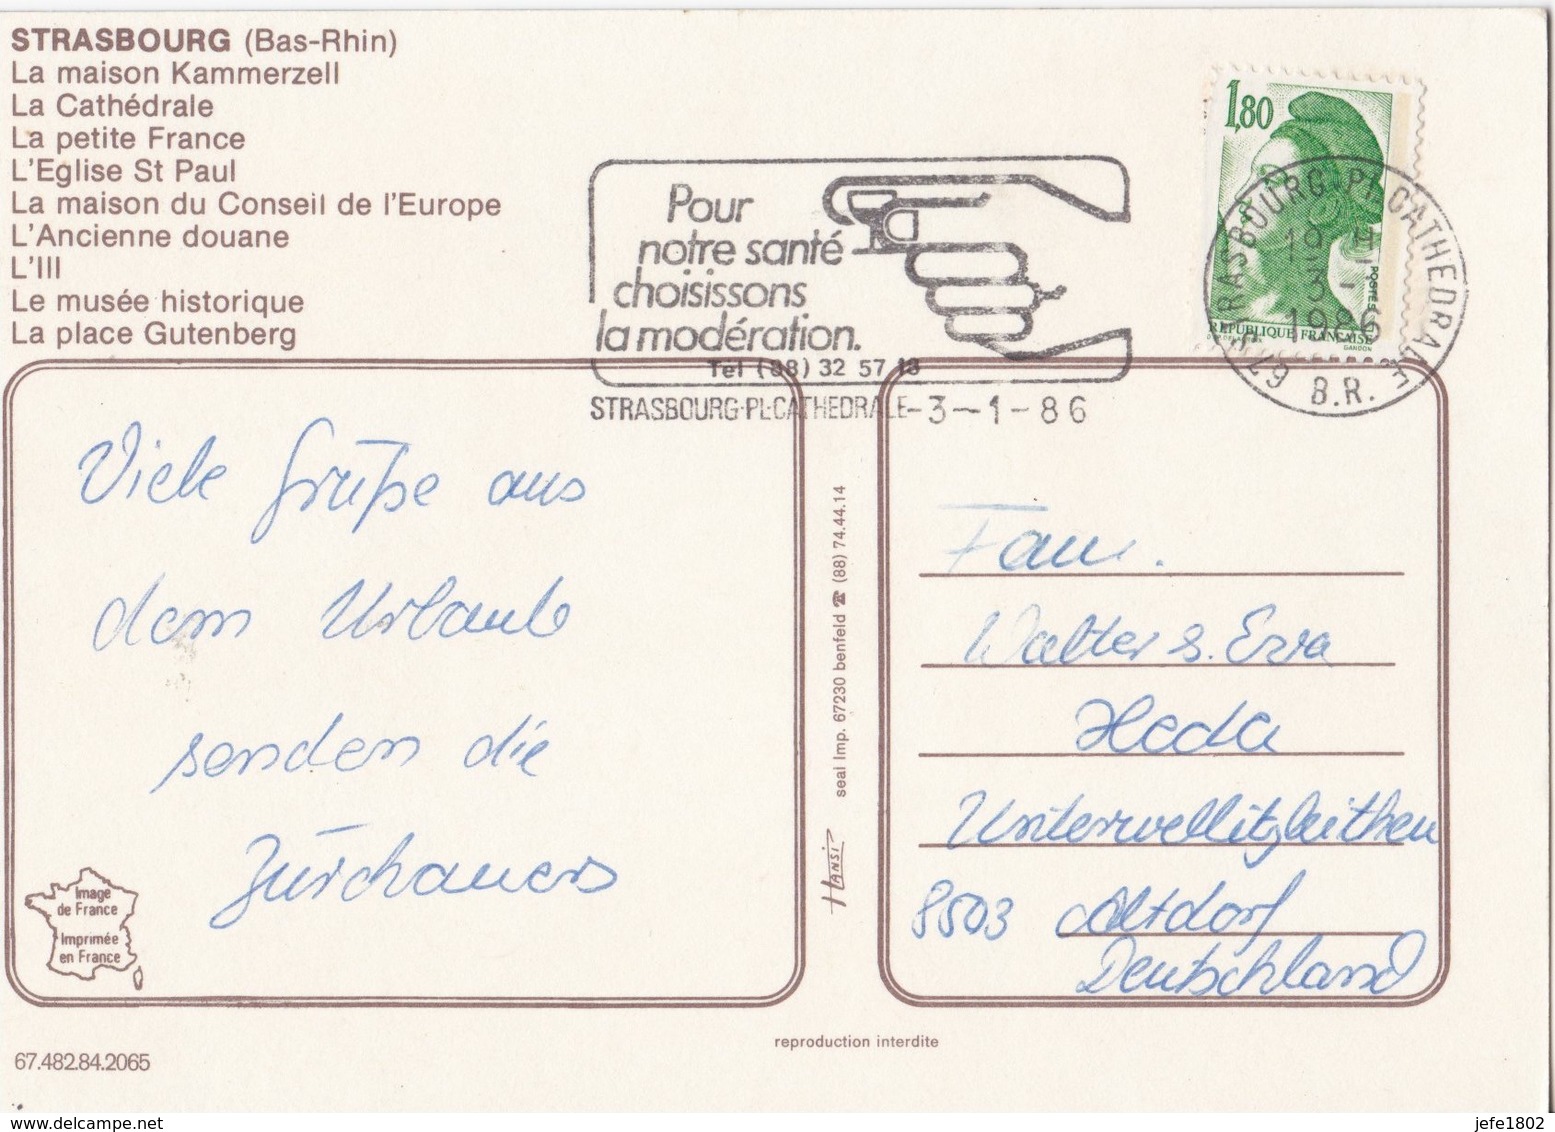 STRASBOURG (Bas-Rhin)
La maison Kammerzell
La Cathédrale
La petite France
L'Eglise St Paul
La maison du Conseil de l'Europe
L'Ancienne douane
L'Ill
Le musée historique
La place Gutenberg
Pour
notre santé
choisissons
la modération.
Tel (88) 32 57 18
STRASBOURG-PL-CATHEDRALE-3-1-86
1,80
POSTES
REPUBLIQUE FRANCAISE
GANDON
STRASBOURG PL. CATHEDRALE
19 H
3 - 1
1986
B.R.
Viele Grüße aus
dem Urlaub
senden die
Zürchauers
Image
de France
Imprimée
en France
67.482.84.2065
seal Imp. 67230 benfeld ☎ (88) 74.44.14
HANSI
reproduction interdite
Fam.
Walter s. Eva
Heda
8503 Altdorf
Deutschland
jefe1802